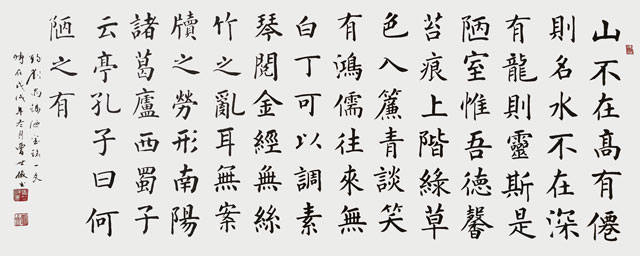 山不在高有僊
則名水不在深
有龍則靈斯是
陋室惟吾德馨
苔痕上階綠草
色入簾青談笑
有鴻儒往來無
白丁可以調素
琴閱金經無絲
竹之亂耳無案
牘之勞形南陽
諸葛廬西蜀子
云亭孔子曰何
陋之有
劉禹錫陋室銘一文
時在戊戌年冬月曹士